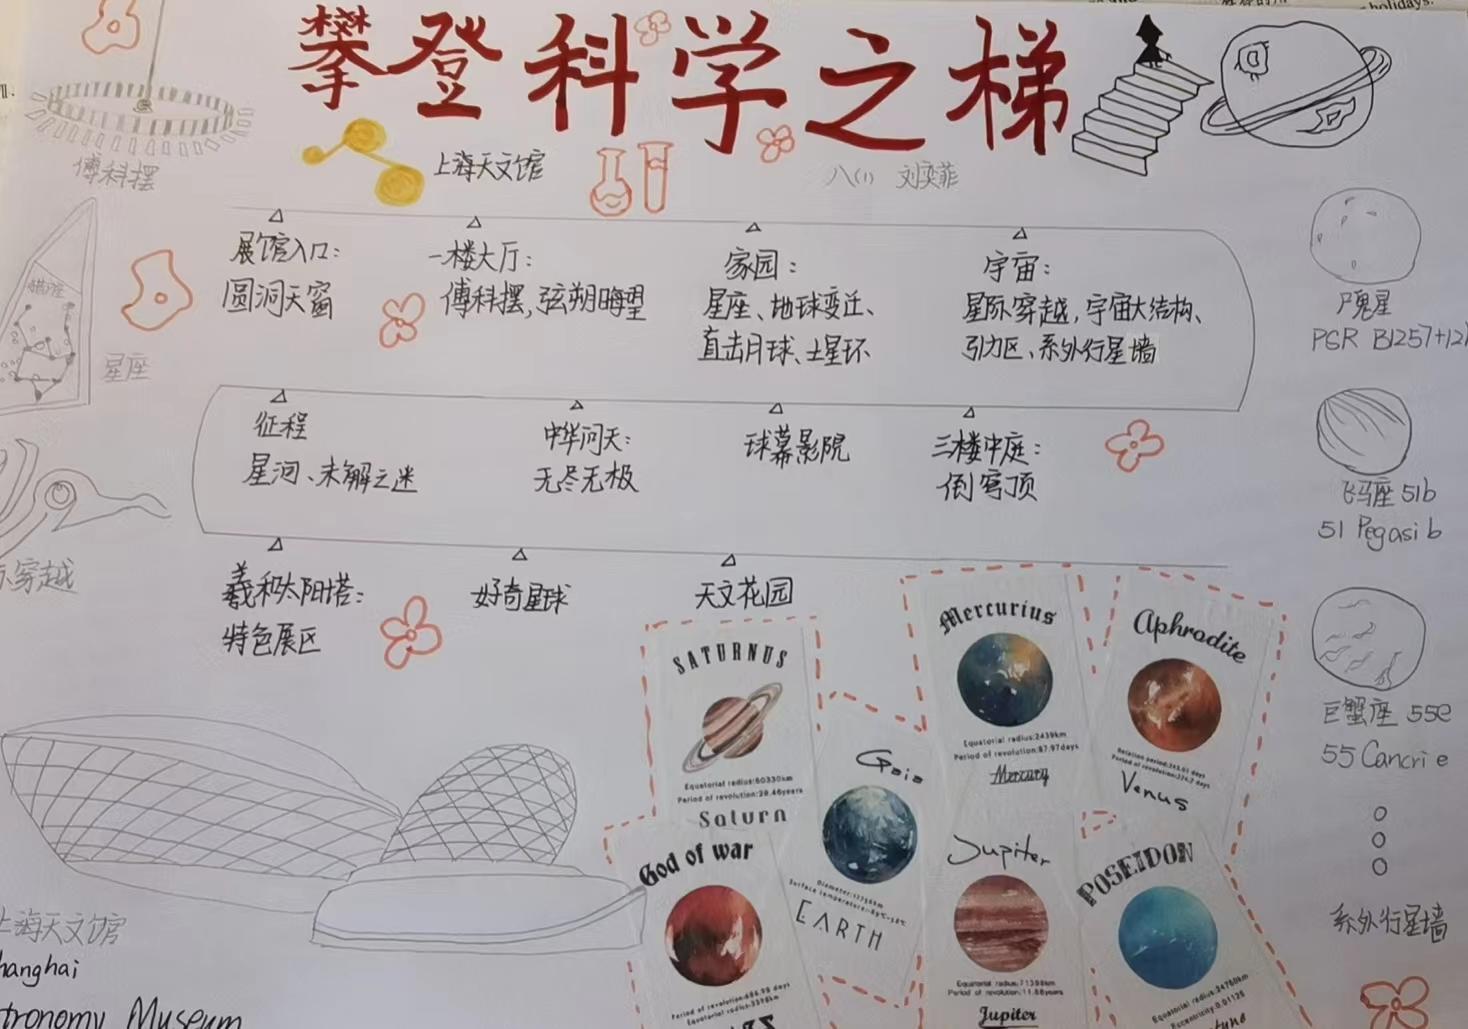 holidays.
攀登科学之梯
傅科摆
上海天文馆
八(1) 刘奕菲
展馆入口:
圆洞天窗
一楼大厅:
傅科摆,弦朔晦望
家园:
星座、地球变迁、
直击月球、土星环
宇宙:
星际穿越,宇宙大结构、
引力区、系外行星墙
星座
征程
星河、未解之迷
中华问天:
无尽无极
球幕影院
三楼中庭:
倒穹顶
羲和太阳塔:
特色展区
好奇星球
天文花园
穿越
尸鬼星
PSR B1257+12
飞马座 51b
51 Pegasi b
巨蟹座 55e
55 Cancri e
系外行星墙
SATURNUS
Equatorial radius:60330km
Period of revolution:29.46years
Saturn
Gaia
EARTH
Mercurius
Equatorial radius:2439km
Period of revolution:87.97days
Mercury
Aphrodite
Venus
God of war
Jupiter
Equatorial radius:71398km
Period of revolution:11.86years
Jupiter
POSEIDON
Equatorial radius:24760km
上海天文馆
hanghai
tronomy Museum